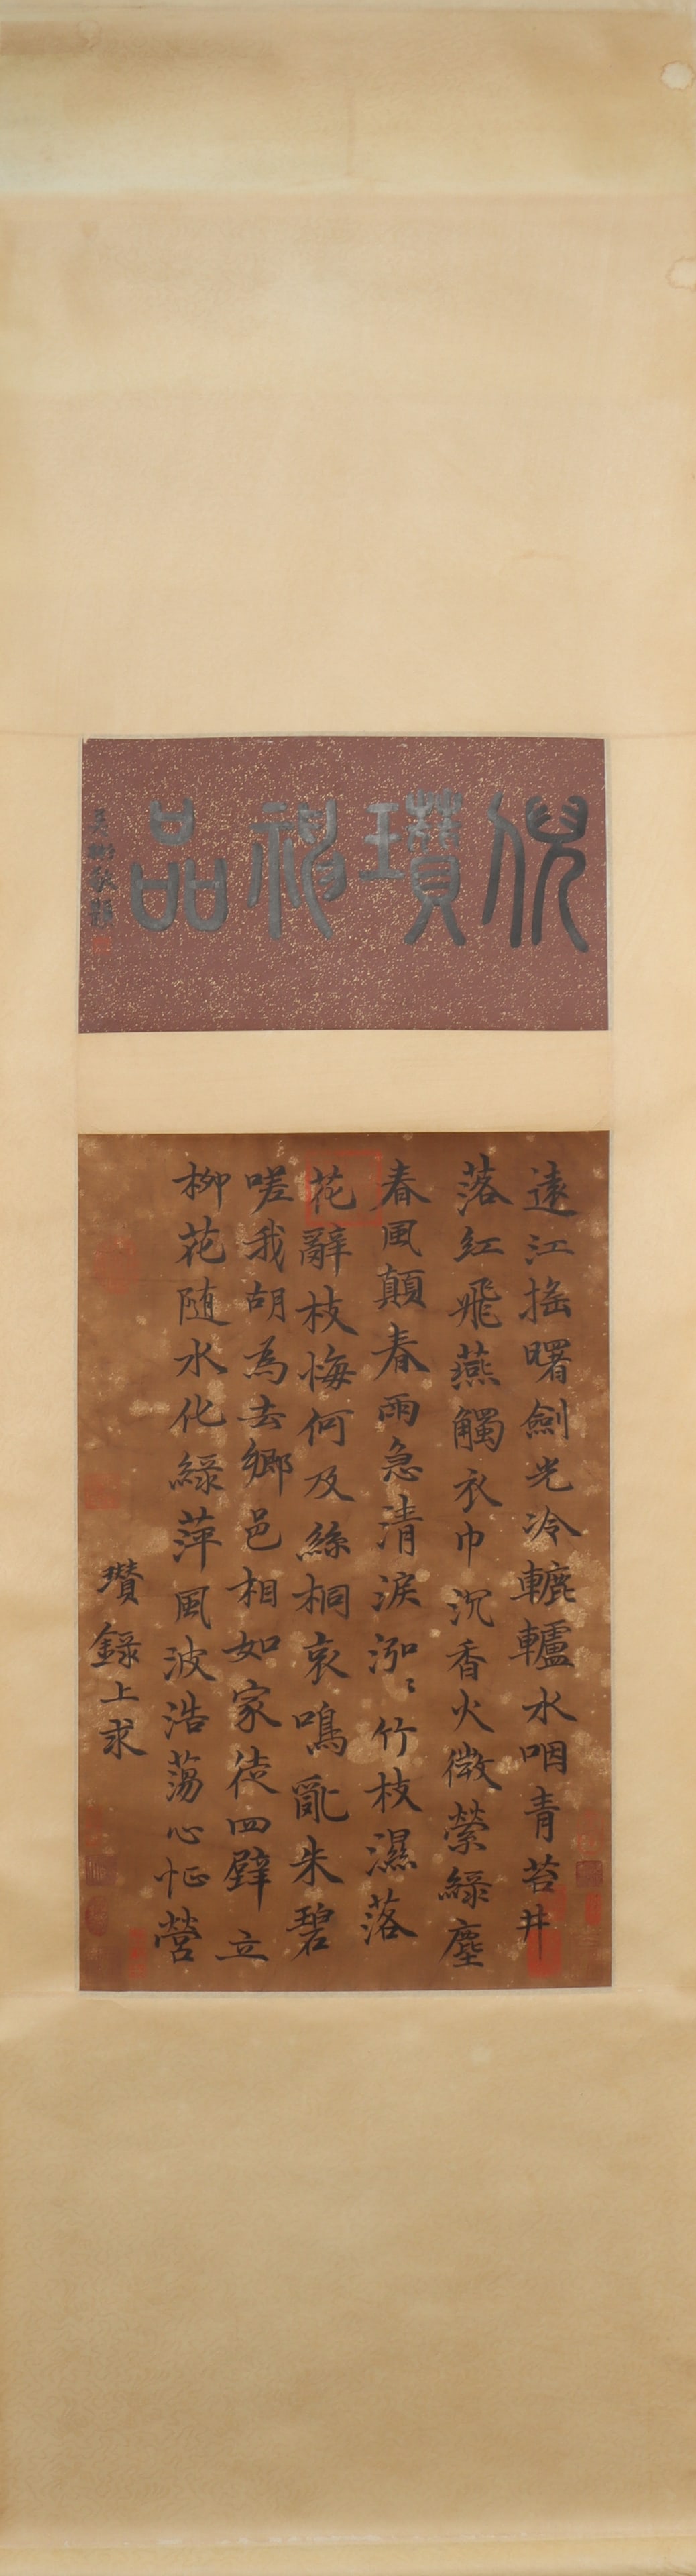 倪瓚神品
吳湖帆題
遠江搖曙劍光冷轆轤水咽青苔井
落紅飛燕觸衣巾沉香火微縈綠塵
春風顛春雨急清淚泓泓竹枝濕落
花辭枝悔何及絲桐哀鳴亂朱碧
嗟我胡為去鄉邑相如家徒四壁立
柳花隨水化綠萍風波浩蕩心怔營
瓚錄上求